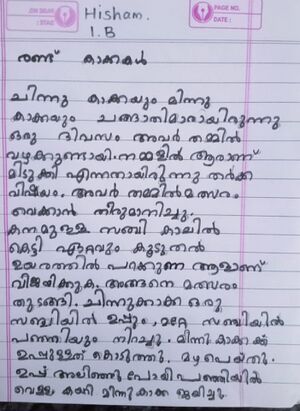 Hisham.
1.B
PAGE NO.
DATE :
രണ്ട് കാക്കകൾ
ചിന്നു കാക്കയും മിന്നു
കാക്കയും ചങ്ങാതിമാരായിരുന്നു
ഒരു ദിവസം അവർ തമ്മിൽ
വഴക്കുണ്ടായി. നമ്മളിൽ ആരാണ്
മിടുക്കി എന്നതായിരുന്നു തർക്ക
വിഷയം. അവർ തമ്മിൽ മത്സരം
വെക്കാൻ തീരുമാനിച്ചു.
കനമുള്ള സഞ്ചി കാലിൽ
കെട്ടി ഏറ്റവും കൂടുതൽ
ഉയരത്തിൽ പറക്കുന്ന ആളാണ്
വിജയിക്കുക. അങ്ങനെ മത്സരം
തുടങ്ങി. ചിന്നുക്കാക്ക ഒരു
സഞ്ചിയിൽ ഉപ്പും, മറ്റേ സഞ്ചിയിൽ
പഞ്ഞിയും നിറച്ചു. മിന്നികാക്കക്ക്
ഉപ്പുള്ളത് കൊടുത്തു. മഴപെയ്തു.
ഉപ്പ് അലിഞ്ഞു പോയി പഞ്ഞിയിൽ
വെള്ളം കയറി മിന്നുകാക്ക ജയിച്ചു.